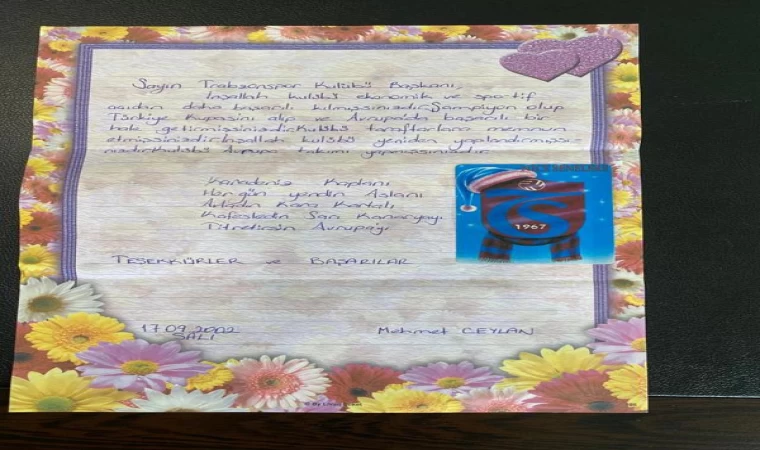 Sayın Trabzonspor Kulübü Başkanı,
İnşallah kulübü ekonomik ve sportif
açıdan daha başarılı kılmışsınızdır. Şampiyon olup
Türkiye Kupasını alıp ve Avrupa'da başarılı bir
hale getirmişsinizdir. Kulübü taraftarlara memnun
etmişsinizdir. İnşallah kulübü yeniden yapılandırmışsı
nızdır. Kulübü Avrupa takımı yapmışsınızdır.
Karadeniz Kaplanı
Her gün yendin Aslanı
Kara Kartalı
Kafesledin Sarı Kanaryayı
Titretirsin Avrupayı
TEŞEKKÜRLER ve BAŞARILAR
1967
17 09 2002
SALI
Mehmet CEYLAN